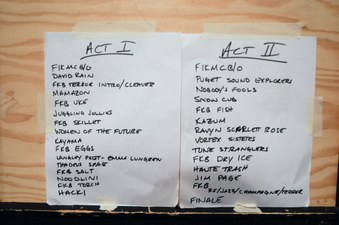 ACT I
FIKMCB/O
DAVID RAIN
FKB TERROR INTRO/CLEAVER
MAMAZON
FKB UKE
JUGGLING JOLLIES
FKB SKILLET
WOMEN OF THE FUTURE
KAYAMA
FKB EGGS
LANGLEY POET - EMMA LUNGREN
FKB SALT
NOODLINI
FKB TORCH
HACKI
ACT II
FIKMCB/O
PUGET SOUND EXPLORERS
NOBODY'S FOOLS
SNOW CUB
FKB FISH
KAZUM
RAVYN SCARLET ROSE
VORTEX SISTERS
TUNE STRANGLERS
FKB DRY ICE
HAUTE TRASH
JIM PAGE
FKB
/CHAMPAGNE/TERROR
FINALE